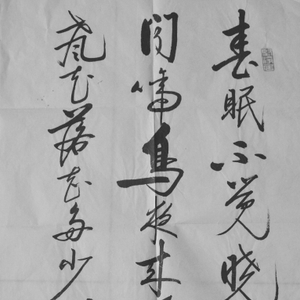 春眠不觉晓
闻啼鸟夜来
声花落知多少